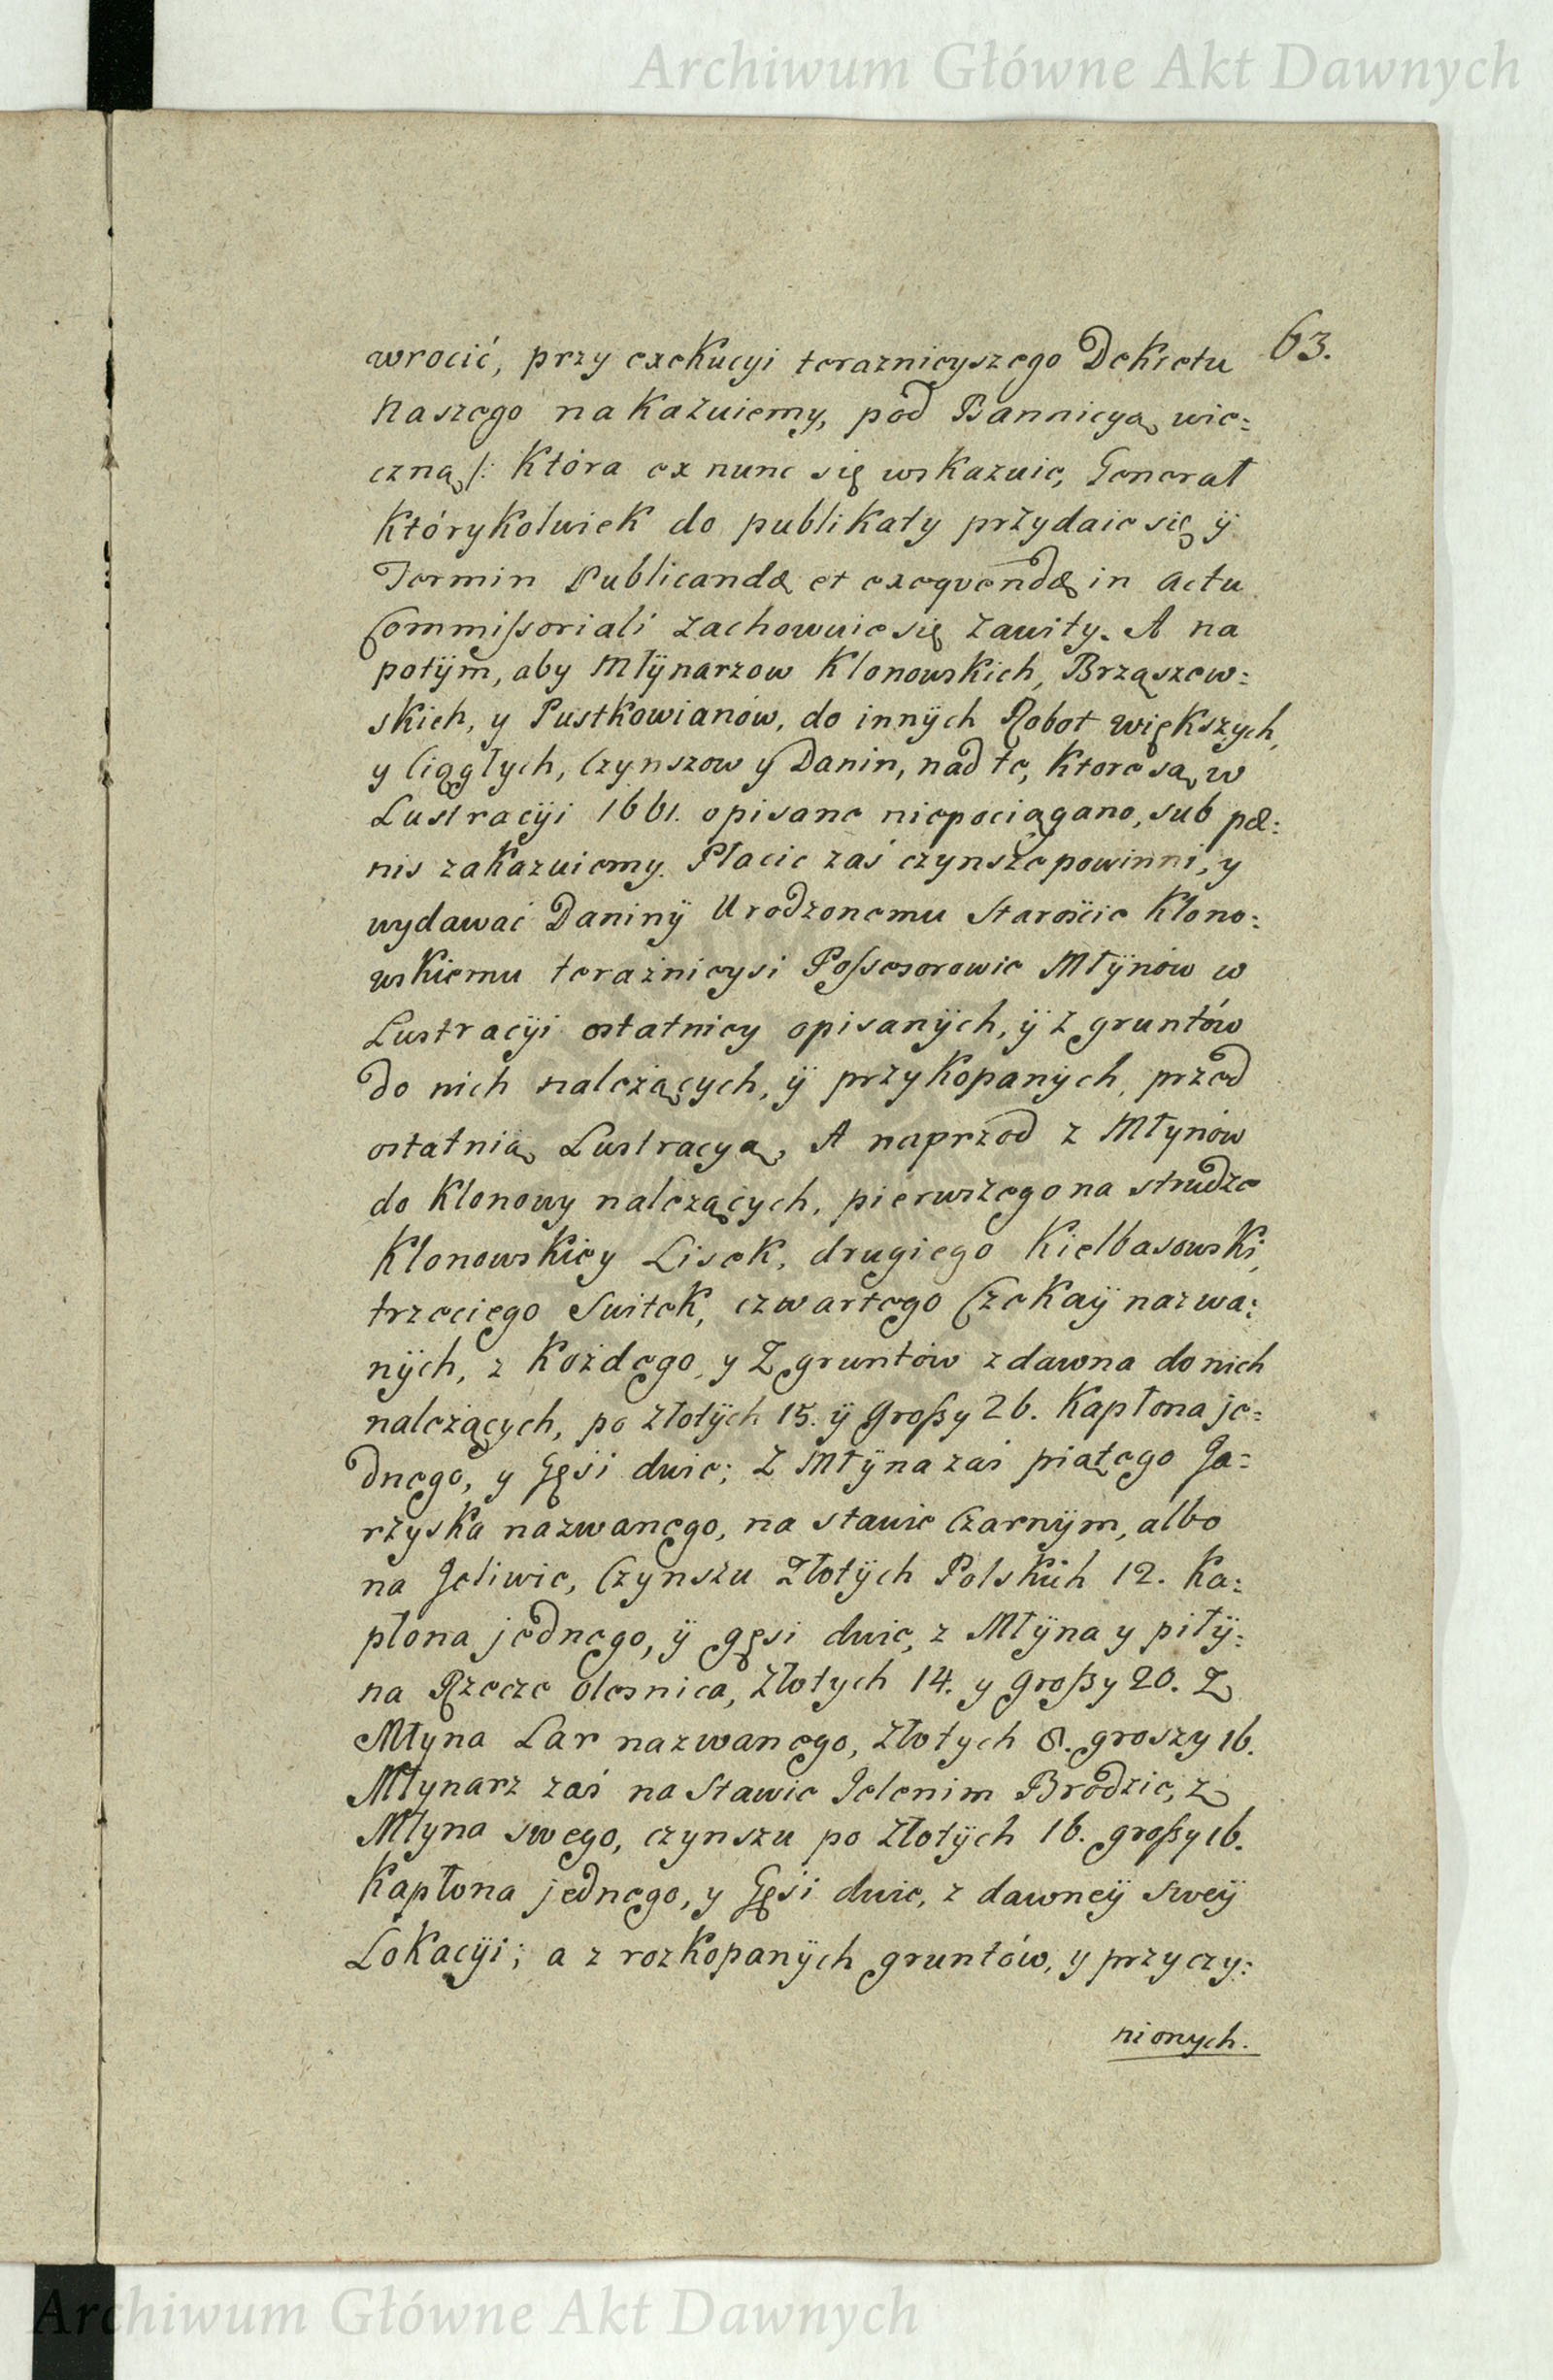 Archiwum Główne Akt Dawnych
63.
wrocić, przy exekucyi teraznieyszego Dekretu
Naszego nakazuiemy, pod Bannicyą wie:
czną /: która ex nunc się wskazuie, Generał
którykolwiek do publikaty przydaie się ÿ
Termin Publicandæ et exequendæ in actu
Commissoriali zachowuie się zawity. A na
potÿm, aby Młÿnarzow Klonowskich, Brząszew:
skich, y Pustkowianów, do innÿch Robot większych,
y Ciągłych, Czynszow y Danin, nad te, ktore są w
Lustracÿi 1661. opisane niepociągano, sub pæ:
nis zakazuiemy. Płacic zaś czynsze powinni, y
wydawać Daninÿ Urodzonemu Starościе Klono:
wskiemu teraźnieysi Possesorowie Młÿnów w
Lustracÿi ostatniey opisanÿch, ÿ z gruntów
do nich należących, ÿ przykopanÿch, przed
ostatnią Lustracyą, A naprzod z Młynów
do Klonowy należących, pierwszego na strudze
Klonowskiey Lisek, drugiego Kiełbasowski,
trzeciego Switek, czwartego Czekaÿ nazwa:
nÿch, z każdego, y z gruntów zdawna do nich
należących, po złotÿch 15. ÿ Groszy 26. Kapłona je=
dnego, y Gęsi dwie; z Młÿna zaś piątego Ja=
rzyska nazwanego, na stawie Czarnÿm, albo
na Jeliwie, Czynszu Złotÿch Polskich 12. Ka:
płona jednego, ÿ gęsi dwie, z Młÿna y piłÿ:
na Rzecze Olesnica, Złotych 14. y Groszy 20. Z
Młyna Lar nazwanego, Złotych 8. groszy 16.
Młynarz zaś na Stawie Jelenim Brodzie, z
Młyna swego, czynszu po Złotÿch 16. groszy 16.
Kapłona jednego, y Gęsi dwie, z dawneÿ sweÿ
Lokacÿi; a z rozkopanÿch gruntów, y przyczy:
nionych.
Archiwum Główne Akt Dawnych